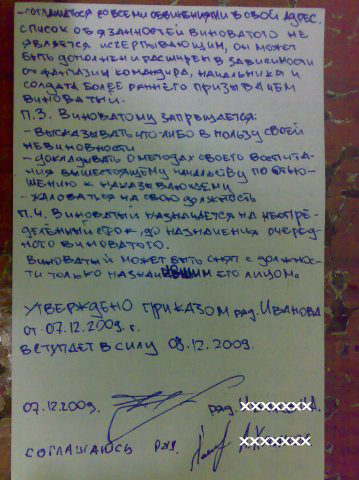 -СОГЛАШАТЬСЯ СО ВСЕМИ ОБВИНЕНИЯМИ В СВОЙ АДРЕС.
СПИСОК ОБЯЗАННОСТЕЙ ВИНОВАТОГО НЕ
ЯВЛЯЕТСЯ ИСЧЕРПЫВАЮЩИМ, ОН МОЖЕТ
БЫТЬ ДОПОЛНЕН И РАСШИРЕН В ЗАВИСИМОСТИ
ОТ ФАНТАЗИИ КОМАНДИРА, НАЧАЛЬНИКА И
СОЛДАТА БОЛЕЕ РАННЕГО ПРИЗЫВА ЧЕМ
ВИНОВАТЫЙ.
П.3. ВИНОВАТОМУ ЗАПРЕЩАЕТСЯ:
- ВЫСКАЗЫВАТЬ ЧТО-ЛИБО В ПОЛЬЗУ СВОЕЙ
НЕВИНОВНОСТИ
- ДОКЛАДЫВАТЬ О МЕТОДАХ СВОЕГО ВОСПИТА-
НИЯ ВЫШЕСТОЯЩЕМУ ПО ОТНО-
ШЕНИЮ К НАКАЗЫВАЮЩЕМУ
- ЖАЛОВАТЬСЯ НА СВОЮ ДОЛЖНОСТЬ
П.4. ВИНОВАТЫЙ НАЗНАЧАЕТСЯ НА НЕОПРЕ-
ДЕЛЁННЫЙ СРОК, ДО НАЗНАЧЕНИЯ ОЧЕРЕД-
НОГО ВИНОВАТОГО.
ВИНОВАТЫЙ МОЖЕТ БЫТЬ СНЯТ С ДОЛЖНОС-
ТИ ТОЛЬКО НАЗНАЧИВШИМ ЕГО ЛИЦОМ.
УТВЕРЖДЕНО ПРИКАЗОМ ряд. ИВАНОВА
от 07.12.2009. г.
ВСТУПАЕТ В СИЛУ 08.12.2009.
07.12.2009. ряд. XXXXXXXX
СОГЛАШАЮСЬ ряд. XXXXXX